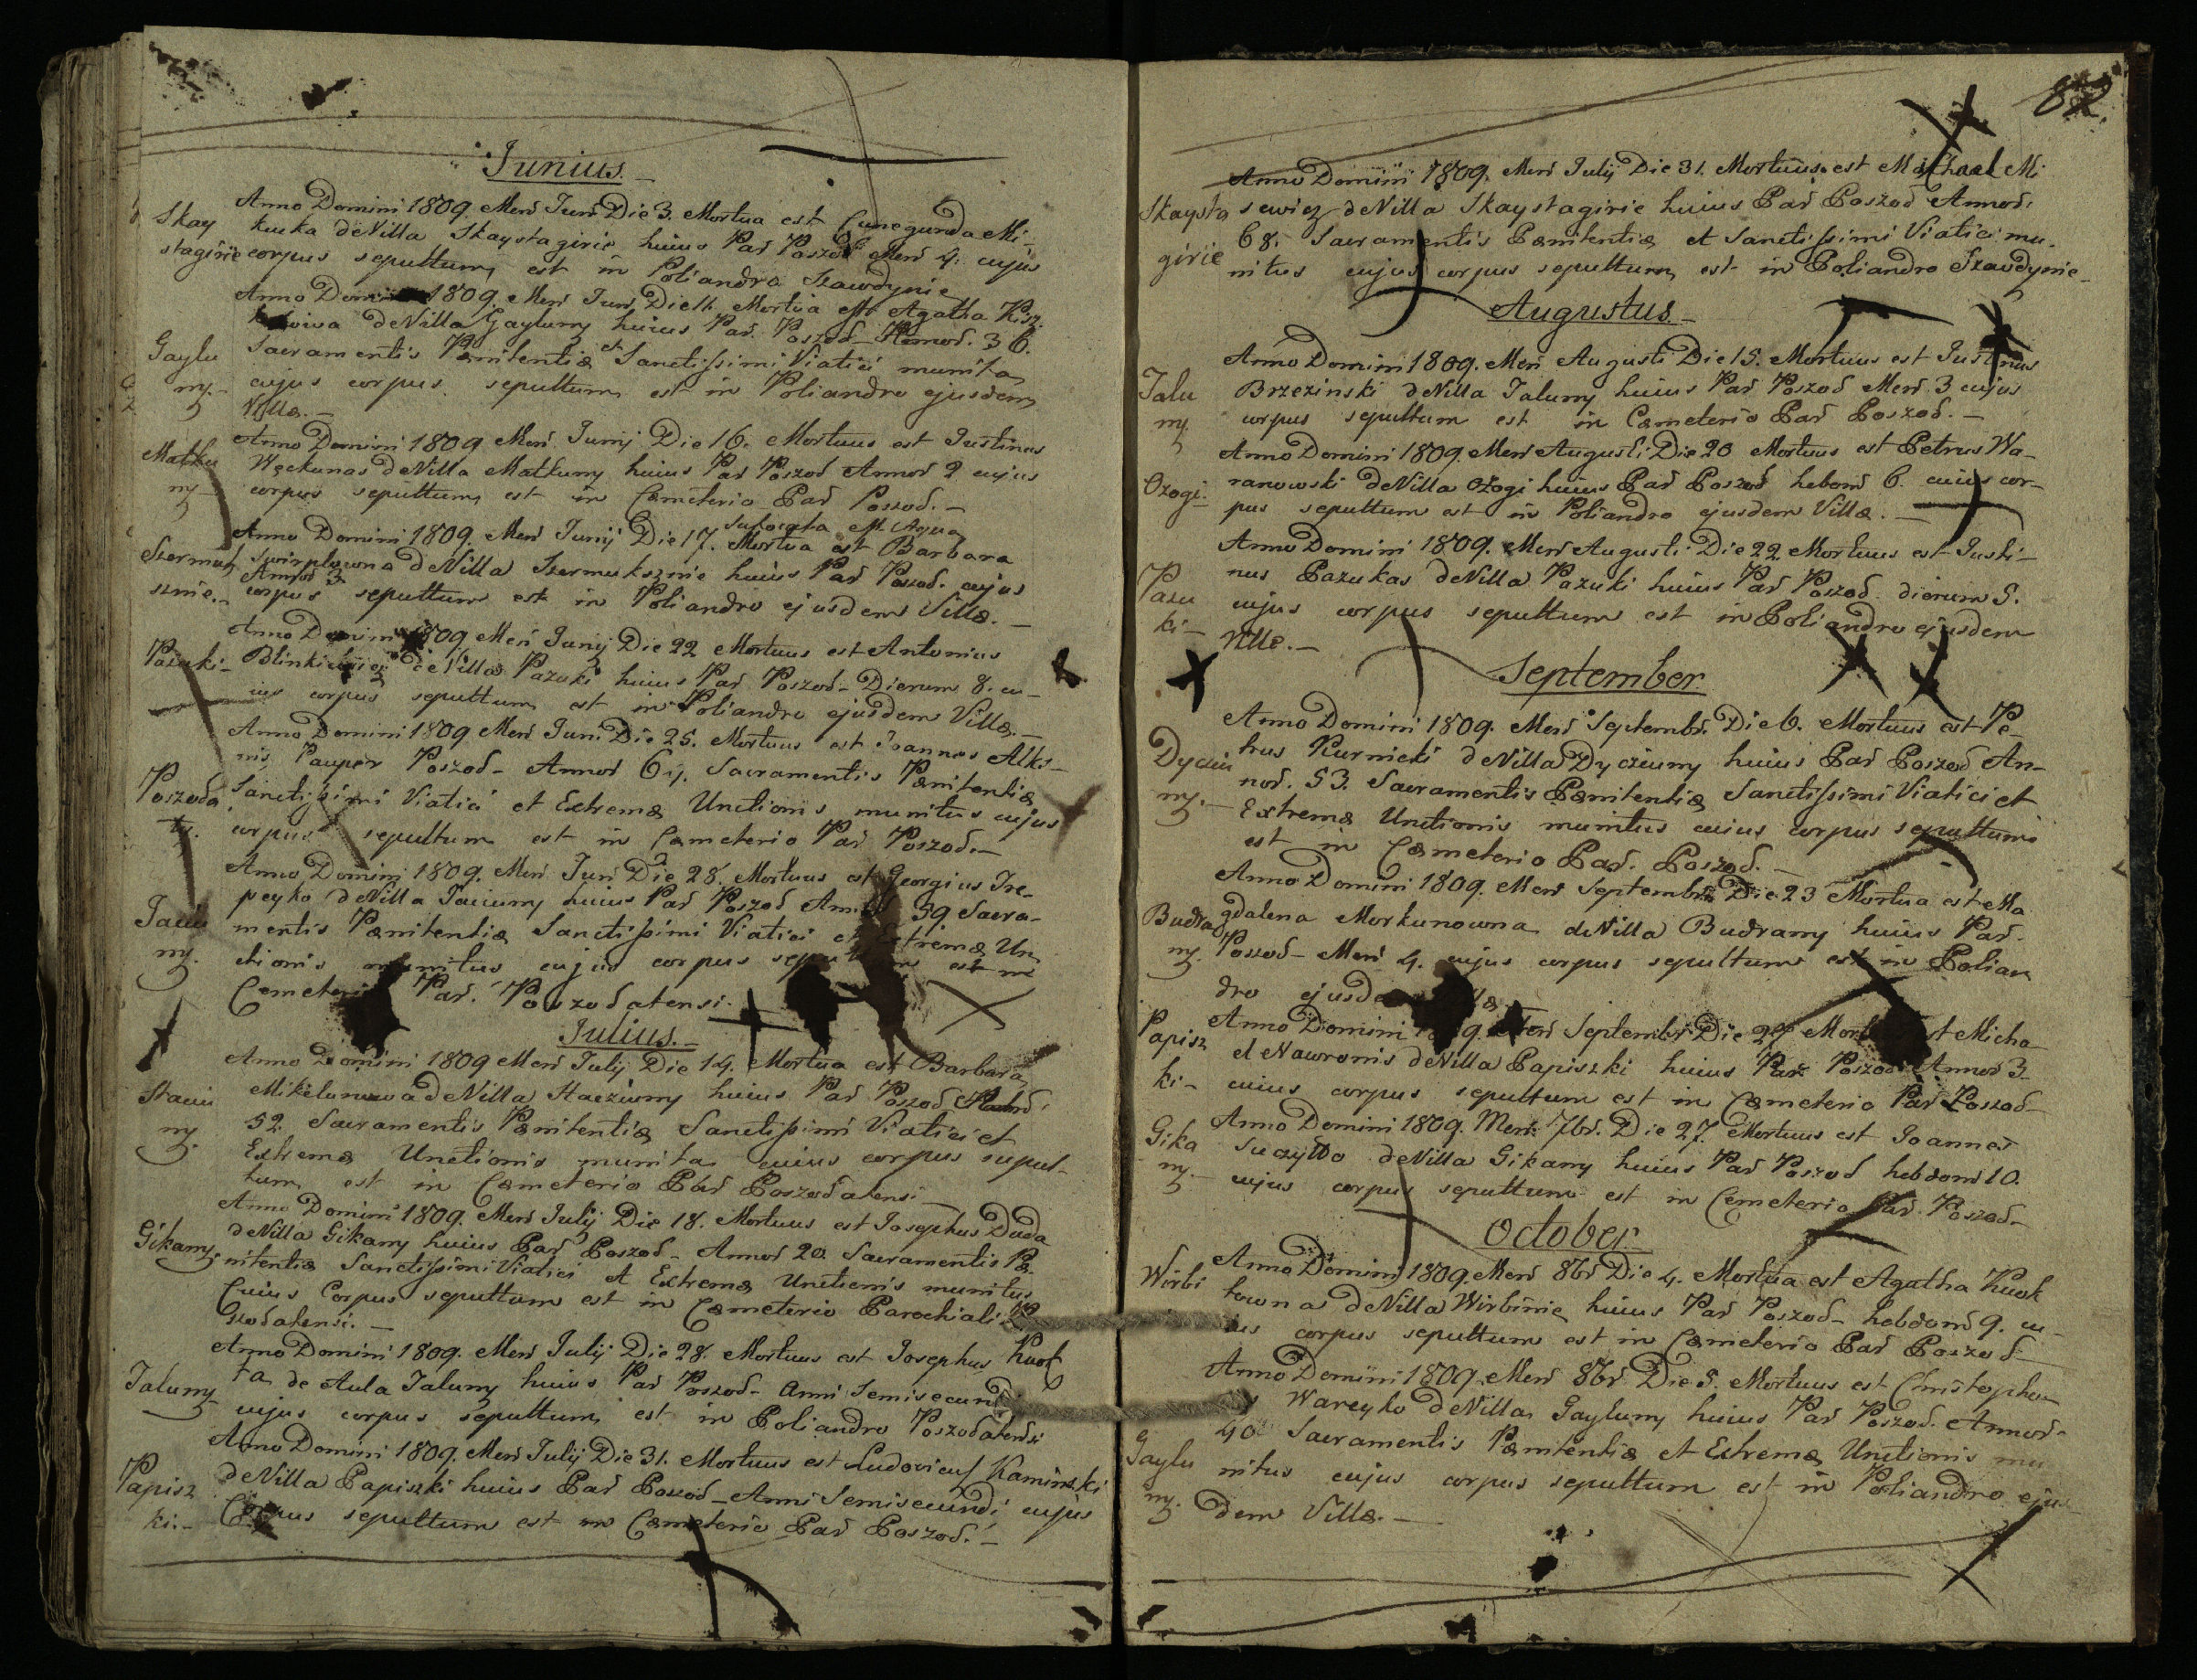 Junius.
Anno Domini 1809. Mens Juni Die 3. Mortua est Cunegunda Mi-
Skay kucka de Villa Skaystagirie huius Par Poszod Mens 4. cujus
stagirie corpus sepultum est in Poliandro Szawdynie
Anno Domini 1809. Mens Juni Die 11. Mortua est Agatha Kisz
de Villa Gayluny huius Par. Poszod - Annor. 36.
Gaylu Sacramentis Pænitentiæ et Sanctissimi Viatici munita
ny.- cujus corpus sepultum est in Poliandro ejusdem
Villæ.-
Anno Domini 1809 Mens Junij Die 16. Mortuus est Justinus
Matku Węckunas de Villa Matkuny huius Par Poszod Annor 2 cujus
ny- corpus sepultum est in Cæmeterio Par Poszod.-
Sufocata est Aqua
Anno Domini 1809. Mens Junij Die 17. Mortua est Barbara
Szermuk Swirplowna de Villa Szermuksznie huius Par Poszod. cujus
Annor 3.
sznie.- corpus sepultum est in Poliandro ejusdem Villæ.-
Anno Domini 1809. Mens Junij Die 22 Mortuus est Antonius
Pazuki- de Villa Pazuki huius Par Poszod- Dierum 8. cu-
ius corpus sepultum est in Poliandro ejusdem Villæ.-
Anno Domini 1809 Mens Juni Die 25. Mortuus est Joannes Alks-
nis, Pauper Poszod- Annor 64. Sacramentis Pænitentiæ
Poszoda Sanctissimi Viatici et Extremæ Unctionis munitus cujus
ty. corpus sepultum est in Cæmeterio Par Poszod.-
Anno Domini 1809. Mens Juni Die 28. Mortuus est Georgius Tre-
peyko de Villa Jaciuny huius Par Poszod Annor 59 Sacra-
Jaciu mentis Pænitentiæ Sanctissimi Viatici et Extremæ Un
ny. ctionis munitus cujus corpus sepultum est in
Cemeterio Par. Poszodatensi.
Julius.-
Anno Domini 1809 Mens Julij Die 14. Mortua est Barbara
Staciu Mikelunowa de Villa Stacziuny huius Par Poszod Annor.
ny. 52. Sacramentis Pænitentiæ Sanctissimi Viatici et
Extremæ Unctionis munita cuius corpus sepul-
tum est in Cæmeterio Par Poszodatensi-
Anno Domini 1809. Mens Julij Die 18. Mortuus est Josephus Duda
Gikany. de Villa Gikany huius Par Poszod- Annor 20 Sacramentis Pæ-
nitentiæ Sanctissimi Viatici et Extremæ Unctionis munitus
Cuius Corpus sepultum est in Cæmeterio Parochiali Po
szodatensi.-
Anno Domini 1809. Mens Julij Die 28. Mortuus est Josephus Kuok
Jaluny- ta de Aula Jaluny huius Par Poszod- Anni Semisecundi
cujus corpus sepultum est in Poliandro Poszodatensi
Anno Domini 1809. Mens Julij Die 31. Mortuus est Ludovicus Kaminski
Papisz de Villa Papiszki huius Par Poszod- Anni Semisecundi cujus
ki.- Corpus sepultum est in Cæmeterio Par Poszod.-
82.
Anno Domini 1809. Mens Julij Die 31. Mortuus est Michael Mi
Skaysta sewicz de Villa Skaystagirie huius Par Poszod Annor.
girie 68. Sacramentis Pænitentiæ et Sanctissimi Viatici mu-
nitus cujus corpus sepultum est in Poliandro Szawdynie-
Augustus.-
Anno Domini 1809. Mens Augusti Die 15. Mortuus est Justinus
Jalu Brzezinski de Villa Jaluny huius Par Poszod Mens 3 cujus
ny. corpus sepultum est in Cæmeterio Par Poszod.-
Anno Domini 1809. Mens Augusti Die 20 Mortuus est Petrus Wa-
Ożogi- ranowski de Villa Ożogi huius Par Poszod hebom 6. cuius cor-
pus sepultum est in Poliandro ejusdem Villæ.-
Anno Domini 1809. Mens Augusti Die 22 Mortuus est Justi-
Pazu nus Pazukas de Villa Pazuki huius Par Poszod. dierum 5.
ki- cujus corpus sepultum est in Poliandro ejusdem
Villæ.-
September
Anno Domini 1809. Mens Septembr. Die 6. Mortuus est Pe-
Dyciu trus Kurnicki de Villa Dycziuny huius Par Poszod An-
ny.- nor. 53. Sacramentis Pænitentiæ Sanctissimi Viatici et
Extremæ Unctionis munitus cuius corpus sepultum
est in Cæmeterio Par. Poszod.-
Anno Domini 1809. Mens Septembris Die 23 Mortua est Ma
Budra gdalena Morkunowna de Villa Budrany huius Par.
ny. Poszod- Mens 4. cujus corpus sepultum est in Polian
dro ejusdem Villæ
Anno Domini 1809. Mens Septembr. Die 24 Mortuus est Micha
Papisz el Nawronis de Villa Papiszki huius Par Poszod Annor 3-
ki- cuius corpus sepultum est in Cæmeterio Par Poszod-
Anno Domini 1809. Mens 7br. Die 27. Mortuus est Joannes
Gika Suczyłło de Villa Gikany huius Par Poszod hebdom 10.
ny.- cujus corpus sepultum est in Cemeterio Par. Poszod-
October
Anno Domini 1809. Mens 8br Die 4. Mortua est Agatha Kuok
Wirbi towna de Villa Wirbinie huius Par Poszod- hebdom 9. cu-
ius corpus sepultum est in Cæmeterio Par Poszod-
Anno Domini 1809. Mens 8br Die 5. Mortuus est Christopho-
Wareyko de Villa Gayluny huius Par Poszod. Annor-
40 Sacramentis Pænitentiæ et Extremæ Unctionis mu
Gaylu nitus cujus corpus sepultum est in Poliandro ejus
ny. dem Villæ.-